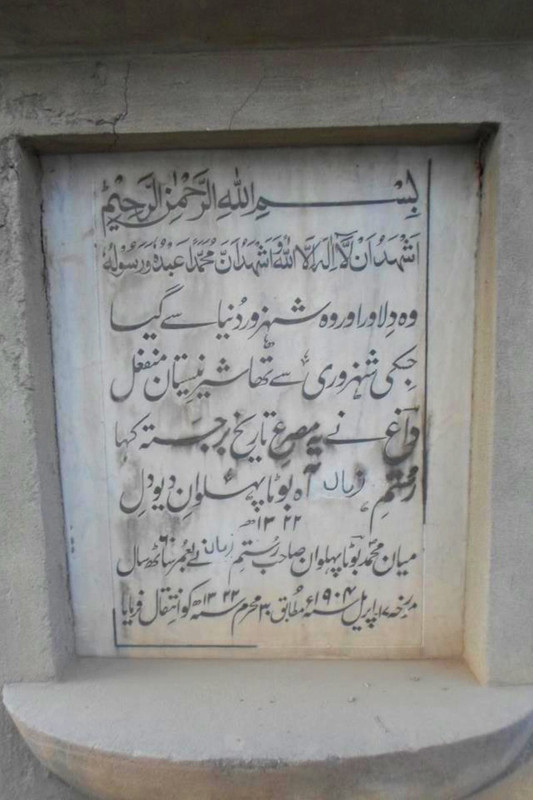 بِسْمِ اللهِ الرَّحْمٰنِ الرَّحِيْمِ
اَشْهَدُ اَنْ لَّآ اِلٰهَ اِلَّا اللهُ وَاَشْهَدُ اَنَّ مُحَمَّدًا عَبْدُهٗ وَرَسُوْلُهٗ
وہ دِلاور اور وہ شہزور دُنیا سے گیا
جسکی شہزوری سے تھا شیرِ نیستان منفعل
داغ نے یہ مصرعِ تاریخ برجستہ کہا
رستمِ زماں آہ بوٹا پہلوانِ دیو دِل
۱۳۲۲ھ
میاں محمد بوٹا پہلوان صاحب رستمِ زماں نے بعمر ۶۰ ساٹھ سال
مورخہ ۱۷ اپریل سنہ ۱۹۰۴ء مطابق ۳۰ محرم سنہ ۱۳۲۲ھ کو انتقال فرمایا